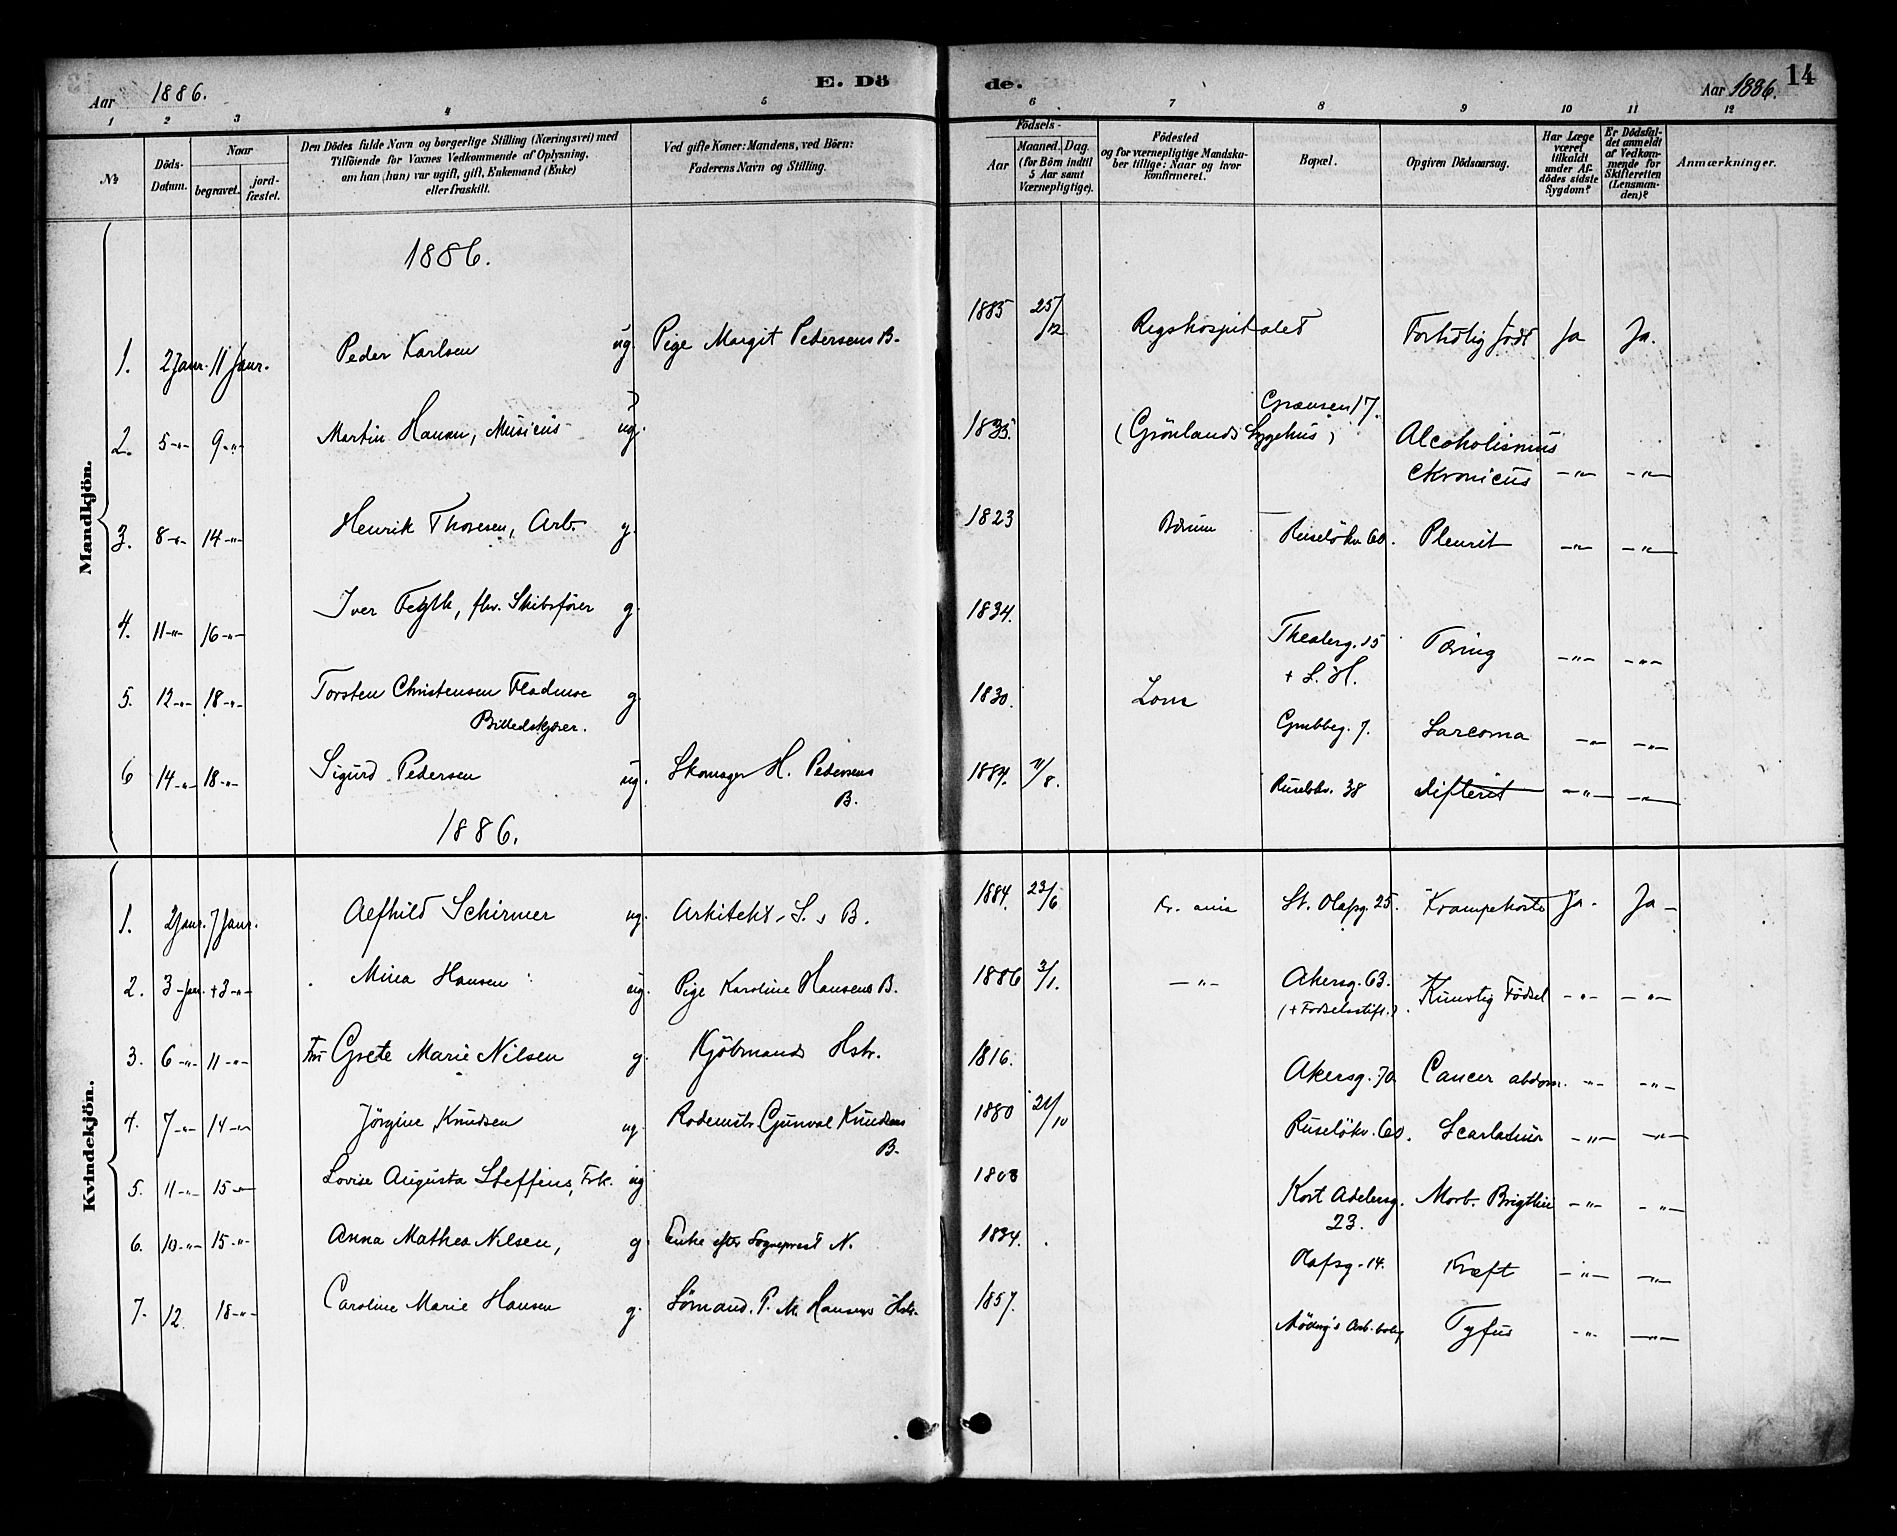 Aar 1886. E. Dö de. Aar 1886. 14
1 2 3 4 5 6 7 8 9 10 11 12
№
Döds-Datum.
Naar
begravet.
jord-fæstet.
Den Dödes fulde Navn og borgerlige Stilling (Næringsvei) med
Tilföiende for Voxnes Vedkommende af Oplysning,
om han (hun) var ugift, gift, Enkemand (Enke)
eller fraskilt.
Ved gifte Koner: Mandens, ved Börn:
Faderens Navn og Stilling.
Födsels-
Aar
Maaned. Dag.
(for Börn indtil
5 Aar samt
Værnepligtige).
Födested
og for værnepligtige Mandskaber tillige: Naar og hvor
konfirmeret.
Bopæl.
Opgiven Dödsaarsag.
Har Læge
været
tilkaldt
under Afdödes sidste
Sygdom?
Er Dödsfaldet anmeldt
af Vedkommende for
Skifteretten
(Lensmanden)?
Anmærkninger.
Mandkjön.
1886.
1. 2 Janr. 11 Janr. Peder Karlsen ug. Pige Margit Pedersens B. 1885 25/12 Rigshospitalet Fortidlig født Ja Ja.
2. 5 -"- 9 -"- Martin Hansen, Musicus ug. 1835. (Grönlands Sygehus) Grænsen 17. Alcoholismus
chronicus -"- -"-
3. 8 -"- 14 -"- Henrik Thoresen, Arb. g. 1823 Bærum Ruseløkv. 60. Pleurit -"- -"-
4. 11 -"- 16 -"- Iver , fhv. Skibsfører g. 1834. Theaterg. 15
+ L. H. Tæring -"- -"-
5. 12 -"- 18 -"- Torsten Christensen Fladmoe g. 1830. Lom
Billedskjærer. Grubbeg. 7. Sarcoma -"- -"-
6 14 -"- 18 -"- Sigurd Pedersen ug. Skomager H. Pedersens
B. 1884. /8. Ruseløkv. 38 difterit -"- -"-
1886.
Kvindekjön.
1. 2 Janr. 7 Janr. Alfhild Schirmer ug. Arkitekt S.s B. 1884. 23/6 Kr.ania St. Olafsg. 25. Krampehoste Ja. Ja
2. 3 Jan. +3 -"- Mina Hansen ug. Pige Karoline Hansens B. 1886 3/1. -"- Akersg. 63.
(+ Fødselsstift.) Kunstig Födsel -"- -"-
3. 6 -"- 11 -"- Fru Grete Marie Nilsen g. Kjöbmands Hstr. 1816. Akersg. 70 Cancer abdom. -"- -"-
4. 7 -"- 14 -"- Jörgine Knudsen ug. Rodemstr. Gunval Knudsens
B. 1880 21/10 Ruselökv. 60. Scarlatina -"- -"-
5. 11 -"- 15 -"- Lovise Augusta Steffens, Frk. ug 1803 Kort Adelersg.
23. Morb. Brigthii -"- -"-
6. 10 -"- 15 -"- Anna Mathea Nilsen, g. Enke efter Sogneprest N. 1834. Olafsg. 14. Kræft -"- -"-
7. 12. 18 -"- Caroline Marie Hansen g. Sömand P. M. Hansens Hstr. 1857. Arb. bolig Tyfus -"- -"-